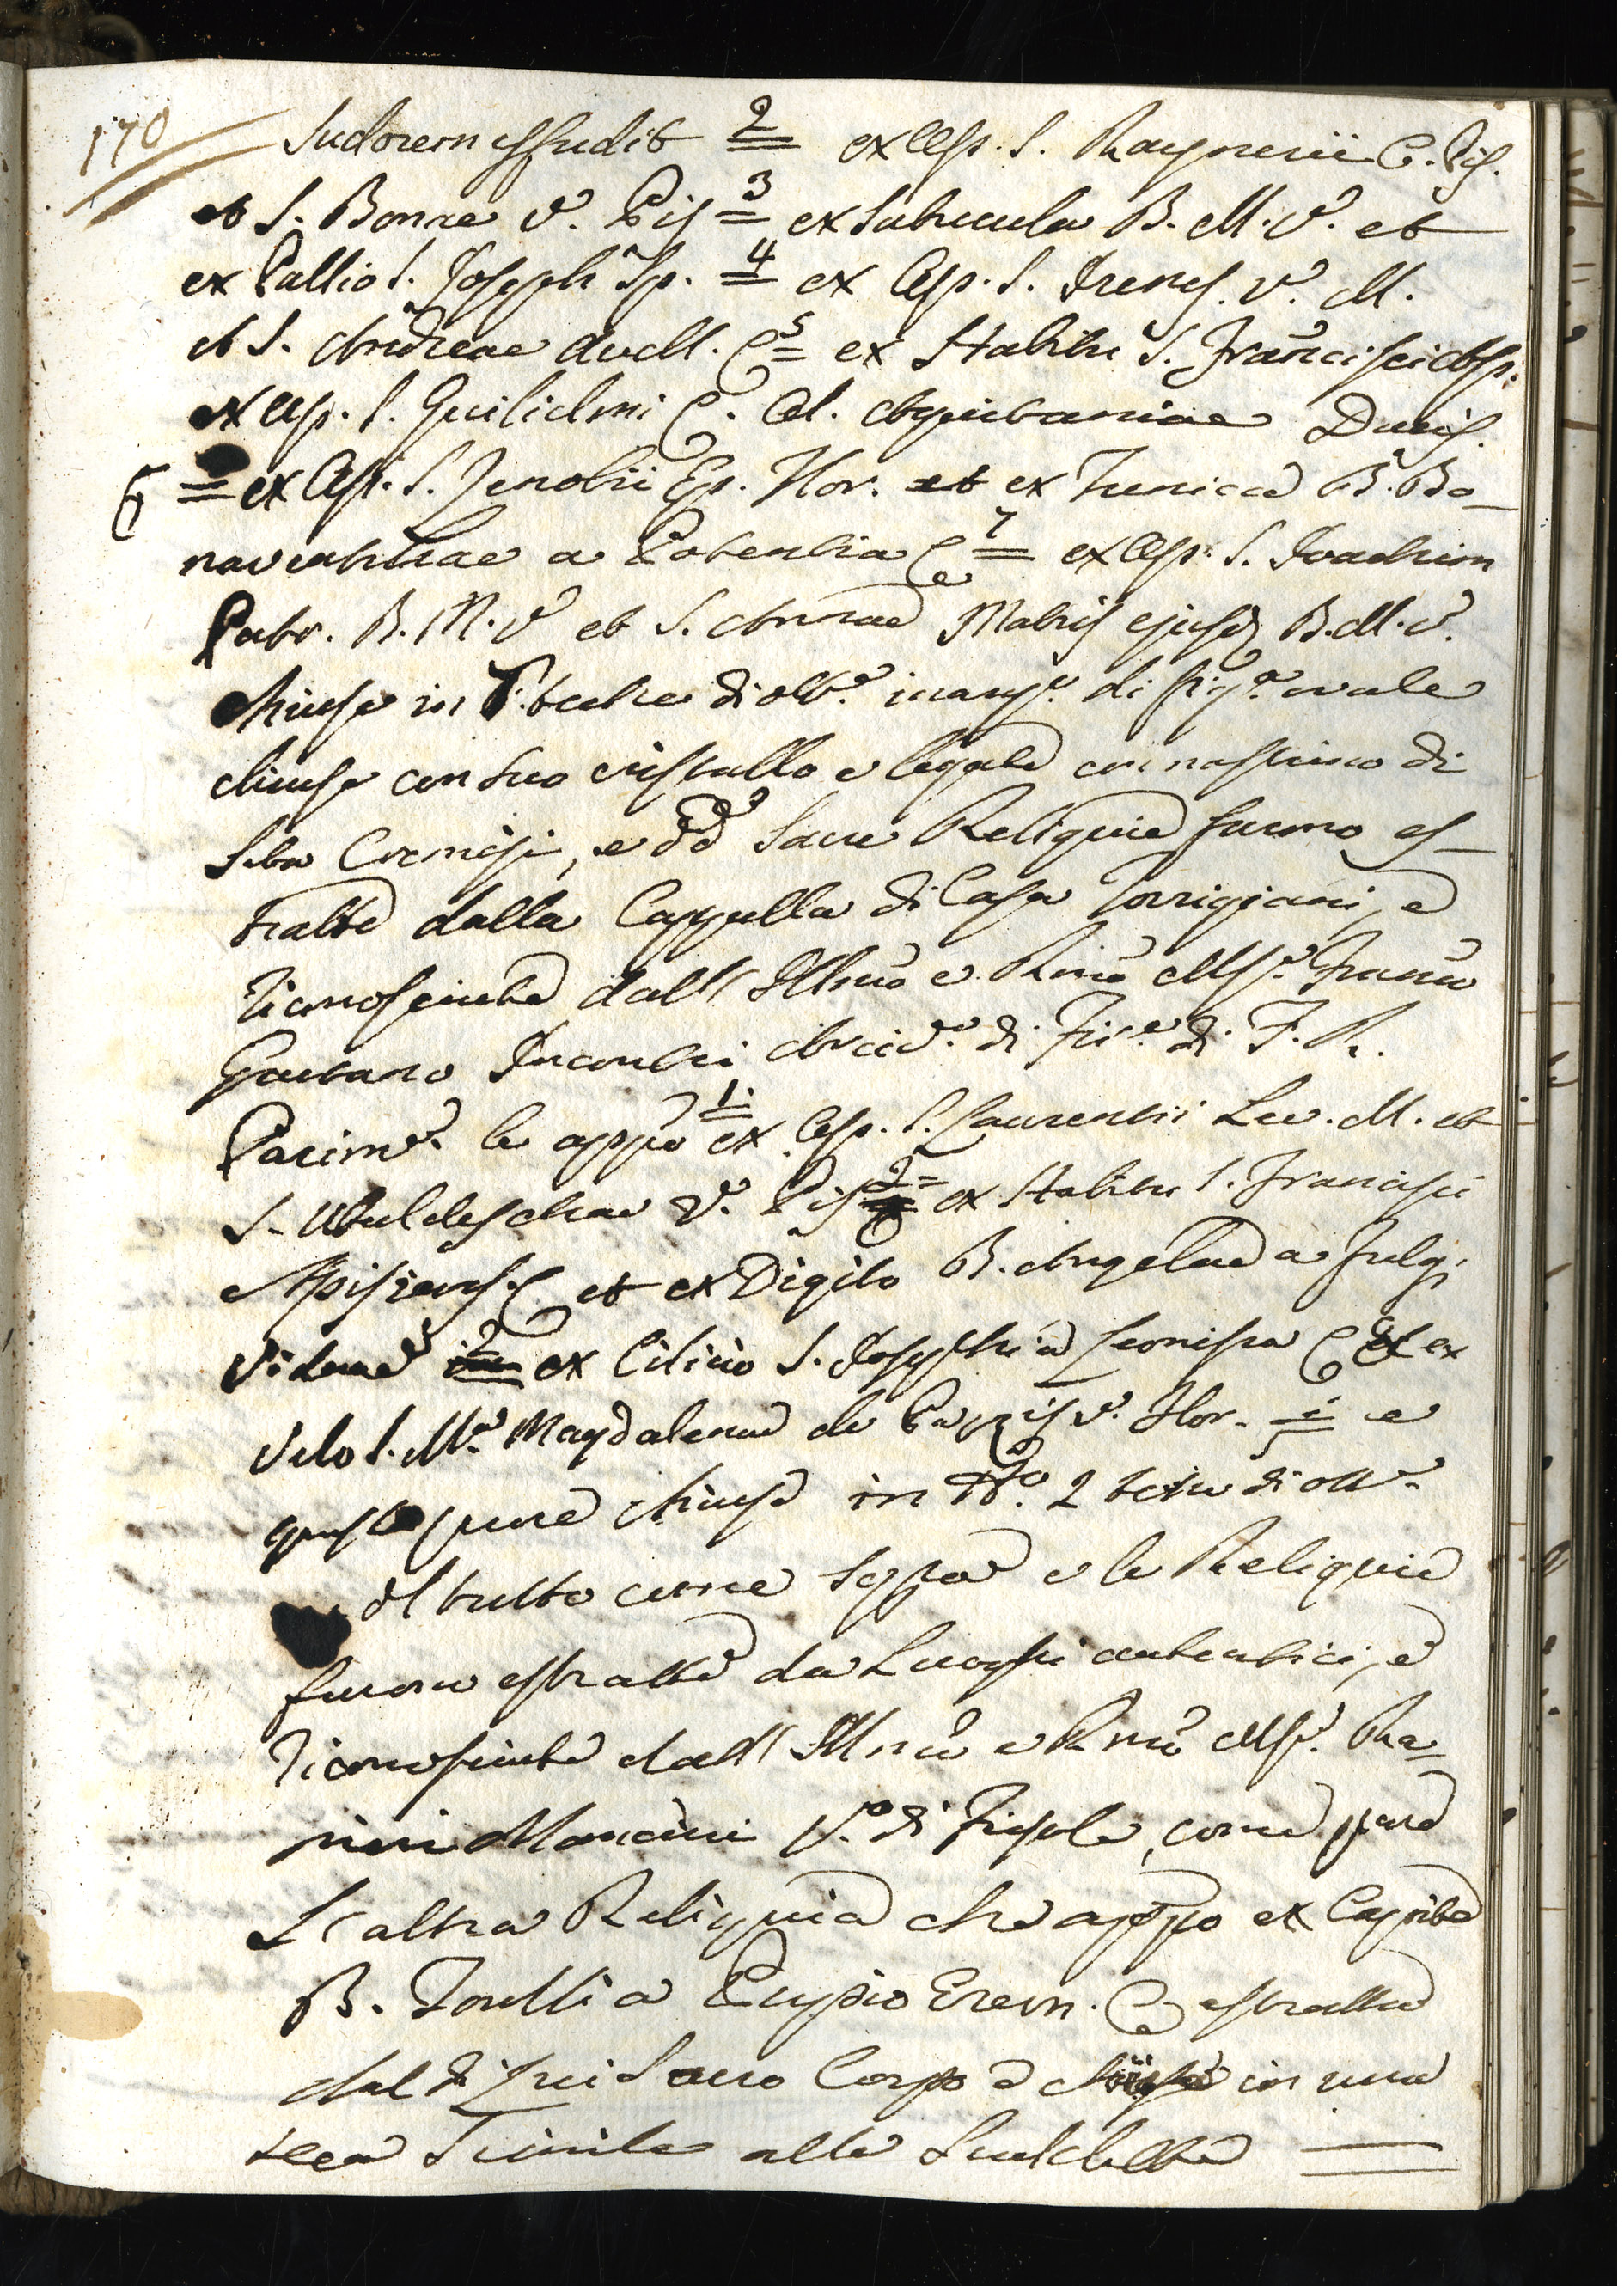 170
Sudorem effudit 2 ex Oss. S. Raynerii C. Pis.
et S. Bonae V. Pis 3 ex subucula B. M. V. et
ex Pallio S. Joseph Sp. 4 ex Oss. S. Irenes. V. M.
et S. Andreae Avell. C 5 ex Habitu S. Francisci Ass.
ex Oss. S. Guilielmi C. Ol. Aquitaniae Ducis.
6 ex Oss. S. Zenobii Ep. Flor. et ex Tunica B. Bo-
naventurae a Potentia C 7 ex Oss. S. Joachim
Patr. B. M. V et S. Annae Matris ejusd B. M. V.
chiuse in 7. teche di ott.e inarg.e di fig.a ovale
chiuse con suo cristallo e legate con nastrino di
Seta Cremisi, e dd.e Sacre Reliquie furno es-
tratte dalla Cappella di Casa Torrigiani, e
riconosciute dall' Illmo e Rmo Msr. Franco
Gaetano Incontri Arcid.o di Fir.e di F. R.
Parim.e le appo 1. ex Oss. S. Laurentii Lev. M. et
S. Ubaldeschae V. Pis 2 ex Habitu S. Francisci
Assisiens. C et ex Digito B. Angelae a Fulg.
Viduae ex Cilicio S. Josephi a Leonissa C et ex
Velo S. M.a Magdalenae de Pazzis V. Flor. e
queste pure chiuse in N.o 2 teche di ott.e
il tutto come sopra e le Reliquie
furono estratte da Luoghi autentici, e
riconosciute dall' Illmo e Rmo Msr. Ra-
nieri Mancini V.o di Fiesole, come pure
L' altra Reliquia che appo ex Capite
B. Torelli a Puppio Erem. C estratta
dal di Lui Sacro Corpo e chiusa in una
teca Simile alle Suddette